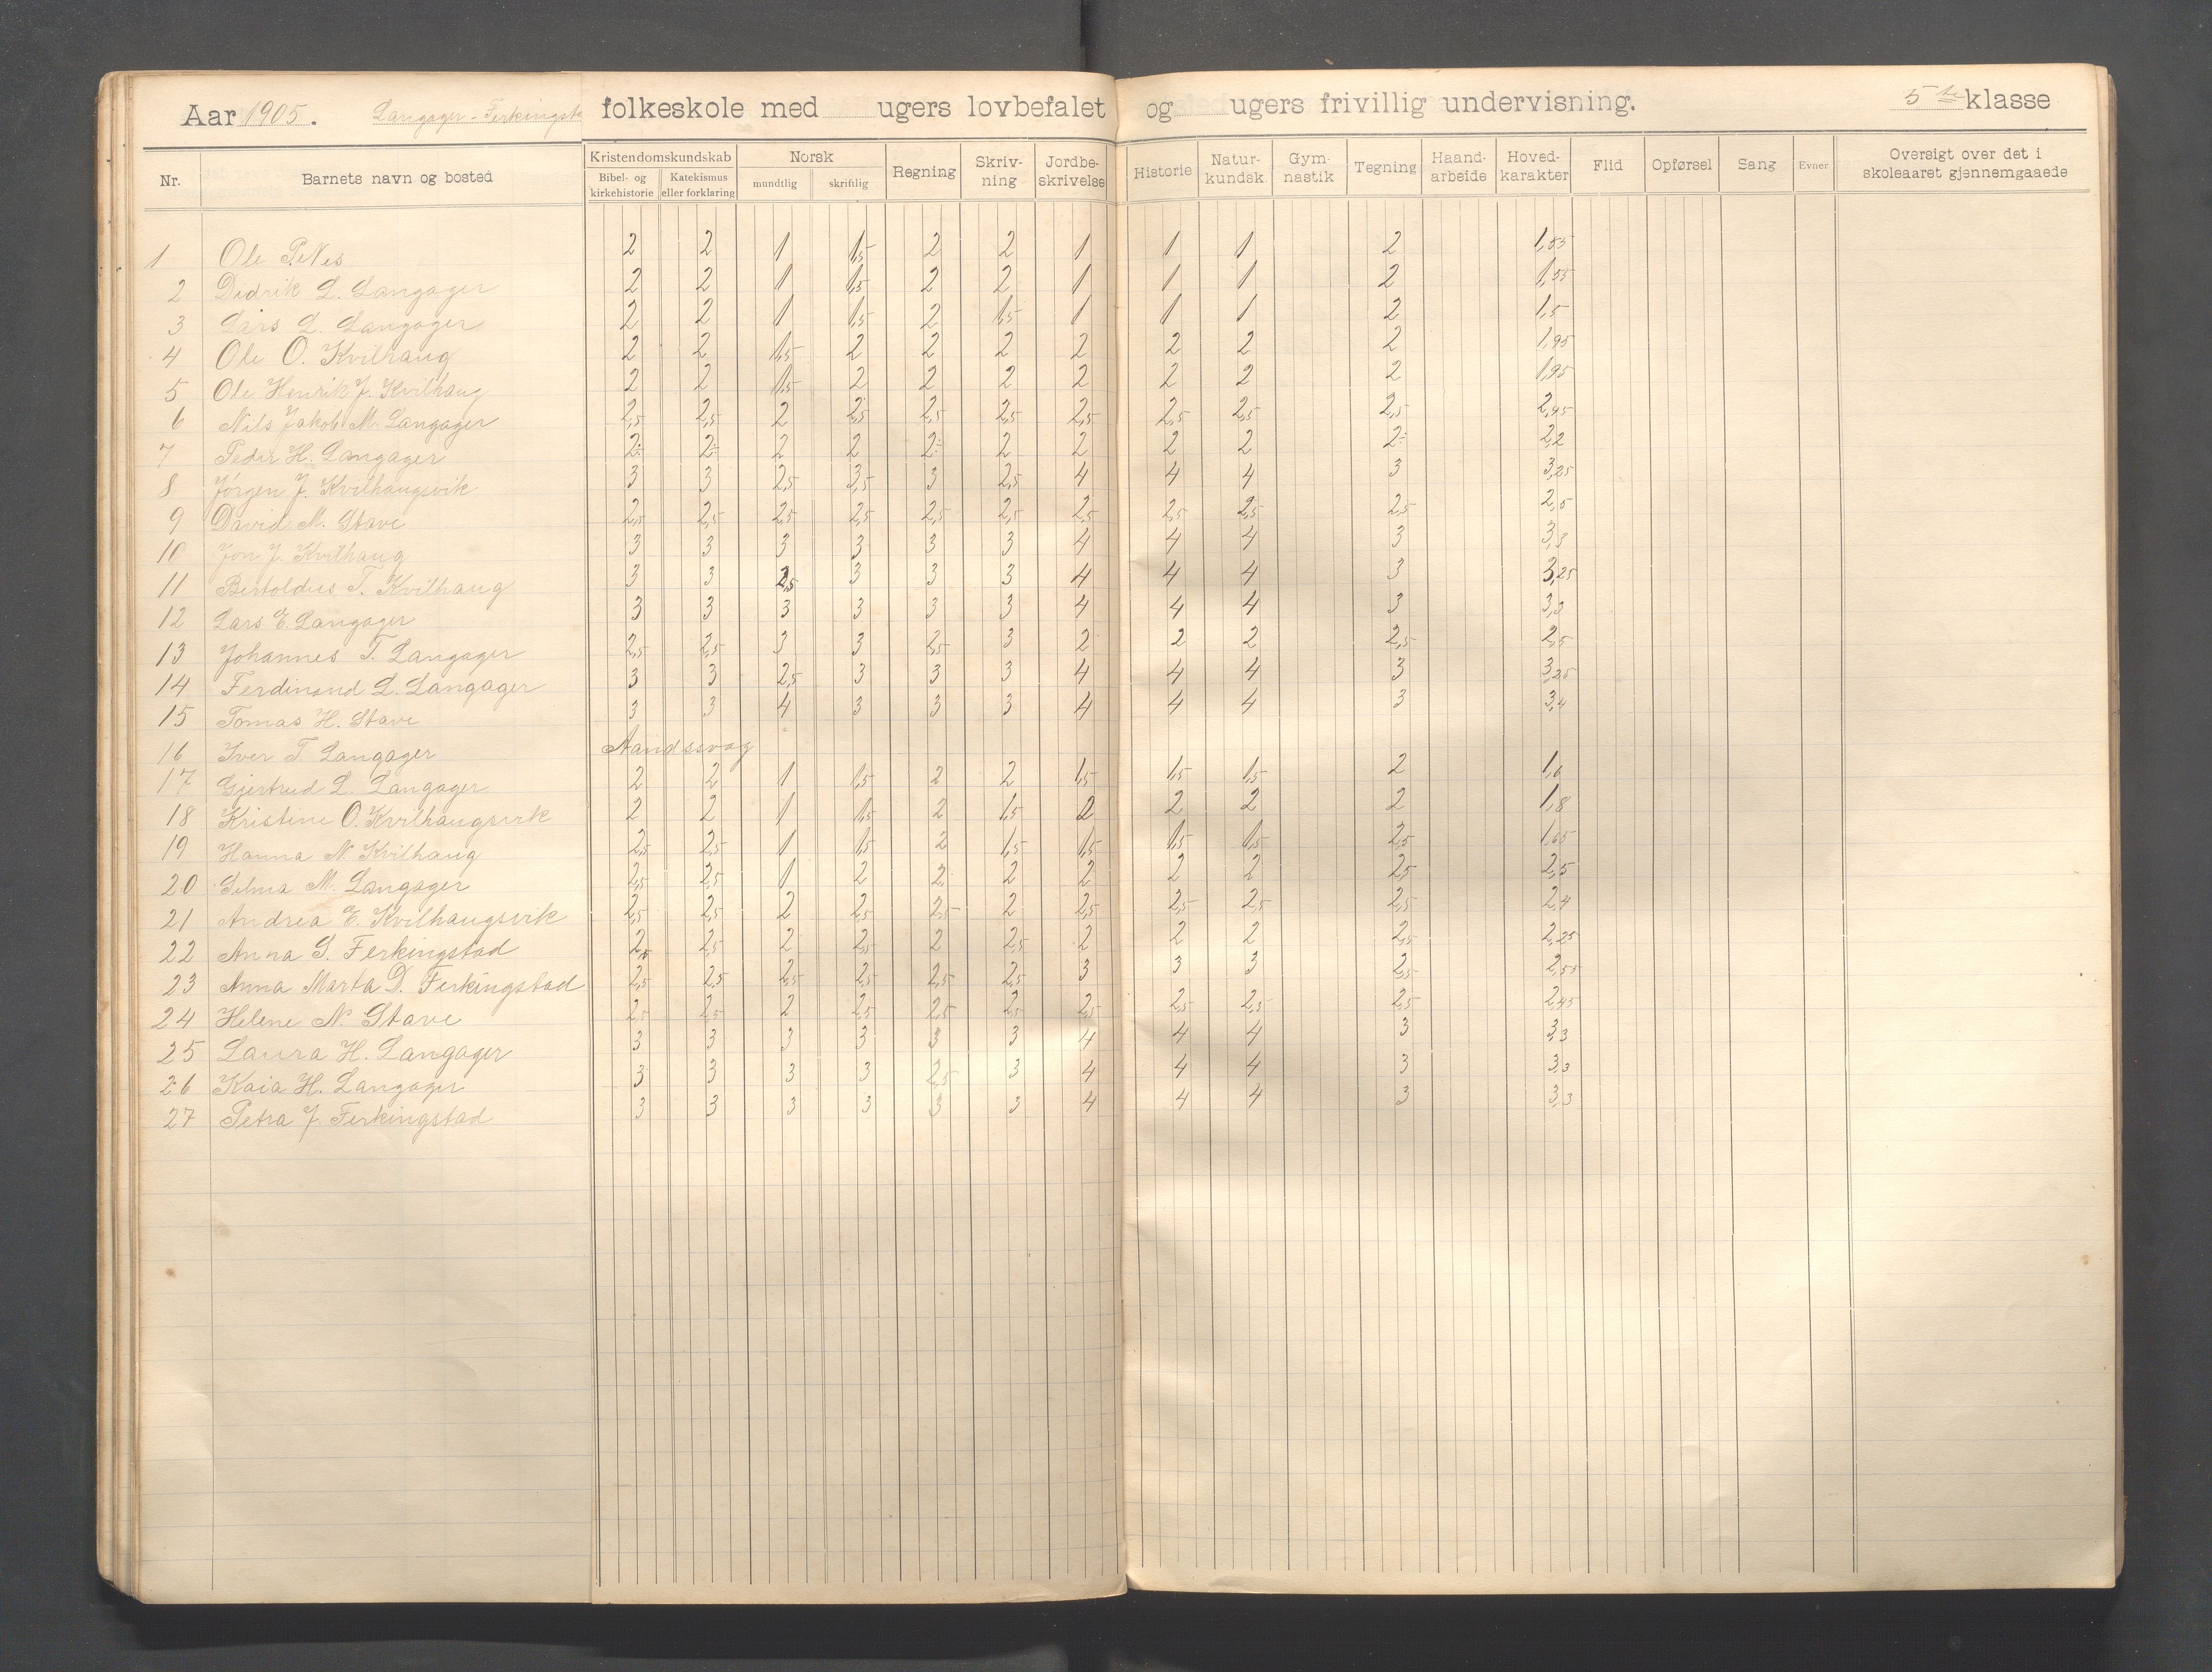 Aar 1905. Langager - Ferkingst folkeskole med ugers lovbefalet og ugers frivillig undervisning. 5te klasse
Nr. Barnets navn og bosted Kristendomskundskab Bibel- og kirkehistorie Katekismus eller forklaring Norsk mundtlig skriftlig Regning Skriv-ning Jordbe-skrivelse Historie Natur-kundsk. Gym-nastik Tegning Haand-arbeide Hoved-karakter Flid Opførsel Sang Evner Oversigt over det i skoleaaret gjennemgaaede
1 Ole P. Nes 2 2 1 1,5 2 2 1 1 1 2
2 Didrik L. Langager 2 2 1 1,5 2 2 1 1 1 2 1,55
3 Lars L. Langager 2 2 1 1,5 2 1,5 1 1 1 2 1,5
4 Ole O. Kvilhaug 2 2 1,5 2 2 2 2 2 2 2 1,95
5 Ole Henrik J. Kvilhaug 2 2 1,5 2 2 2 2 2 2 2 1,95
6 Nils Jakob M. Langager 2,5 2,5 2 2,5 2,5 2,5 2,5 2,5 2,5 2,5 2,45
7 Peder H. Langager 2÷ 2÷ 2 2 2÷ 2 2 2 2 2÷ 2,2
8 Jørgen J. Kvilhaugsvik 3 3 2,5 3,5 3 2,5 4 4 4 3 3,25
9 David N. Stave 2,5 2,5 2,5 2,5 2,5 2,5 2,5 2,5 2,5 2,5 2,5
10 Jon J. Kvilhaug 3 3 3 3 3 3 4 4 4 3 3,3
11 Bertoldus T. Kvilhaug 3 3 2,5 3 3 3 4 4 4 3 3,25
12 Lars E. Langager 3 3 3 3 3 3 4 4 4 3 3,3
13 Johannes T. Langager 2,5 2,5 3 3 2,5 3 2 2 2 2,5 2,5
14 Ferdinand L. Langager 3 3 2,5 3 3 3 4 4 4 3 3,25
15 Tomas H. Stave 3 3 4 3 3 3 4 4 4 3 3,4
16 Iver T. Langager Aandssvag
17 Gjertrud L. Langager 2 2 1 1,5 2 2 1,5 1,5 1,5 2 1,6
18 Kristine O. Kvilhaugsvik 2 2 1 1,5 2 1,5 2 2 2 2 1,8
19 Hanna N. Kvilhaug 2,5 2,5 1 1,5 2 1,5 1,5 1,5 1,5 2,5 1,65
20 Selma M. Langager 2,5 2,5 1 2 2 2 2 2 2 2,5 2,5
21 Andrea E. Kvilhaugsvik 2,5 2,5 2 2,5 2,5 2 2,5 2,5 2,5 2,5 2,4
22 Anna S. Ferkingstad 2,5 2,5 2 2,5 2 2,5 2 2 2 2,5 2,25
23 Anna Marta D. Ferkingstad 2,5 2,5 2,5 2,5 2,5 2,5 3 3 3 2,5 2,55
24 Helene N. Stave 2,5 2,5 2 2,5 2,5 2,5 2,5 2,5 2,5 2,5 2,45
25 Laura H. Langager 3 3 3 3 3 3 4 4 4 3 3,3
26 Kaia H. Langager 3 3 3 3 2,5 3 4 4 4 3 3,3
27 Petra J. Ferkingstad 3 3 3 3 3 3 4 4 4 3 3,3